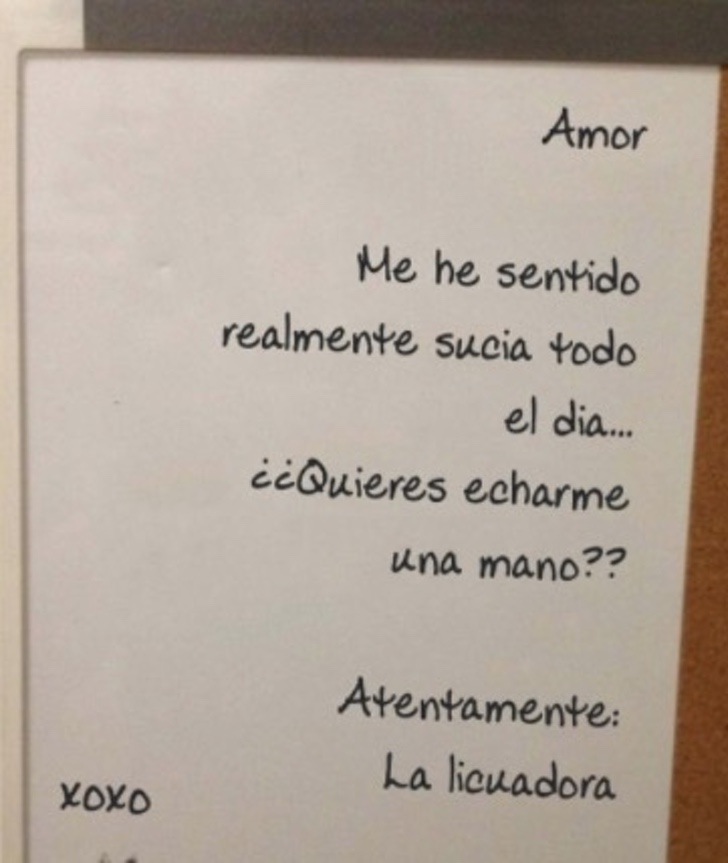 Amor
Me he sentido
realmente sucia todo
el dia...
¿¿Quieres echarme
una mano??
Atentamente:
La licuadora
xoxo